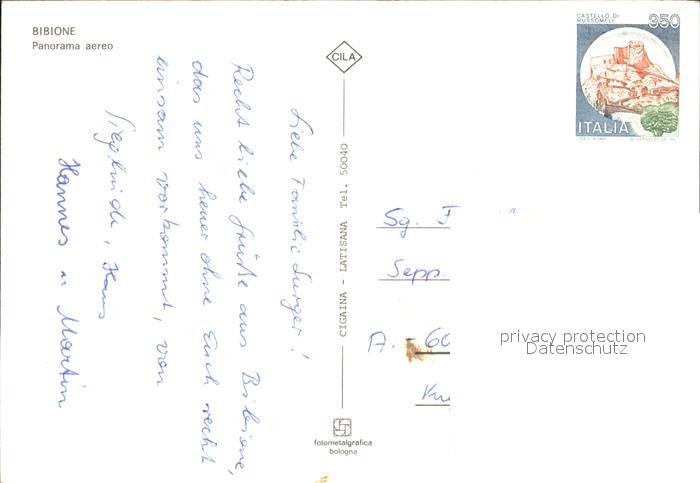 BIBIONE
Panorama aereo
CILA
CASTELLO DI
MUSSOMELI
350
ITALIA
Liebe Familie
Recht liebe Grüße aus Bibione,
das uns heuer ohne Euch recht
einsam vorkommt, von
Sieglinde, Hans
Hannes u Martin
CIGAINA - LATISANA Tel. 50040
Sg. F
Sepp.
A. - 60
privacy protection
Datenschutz
fotometalgrafica
bologna